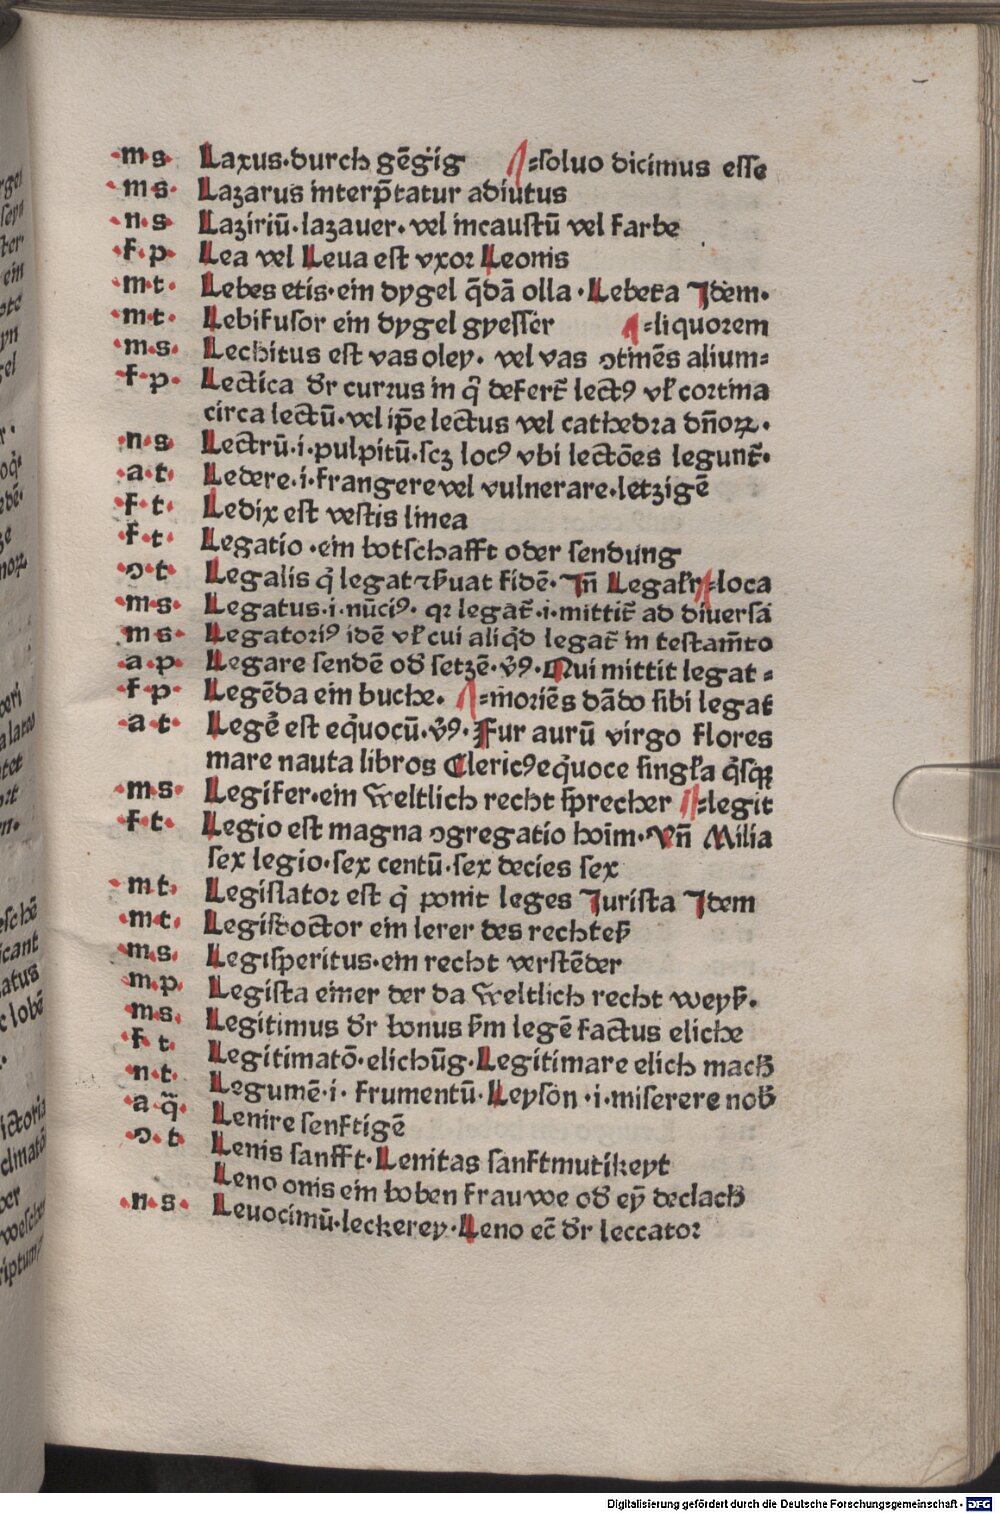 ·m·s· Laxus·durch gēgig =soluo dicimus esse
·m s· Lazarus interp̄tatur adiutus
·n·s· Laziriū·lazauer·vel incaustū vel farbe
·f·p· Lea vel Leua est vxoꝛ Leonis
·m·t· Lebes etis·ein dygel q̄dā olla·Lebeta Jdem·
·m·t· Lebifusor ein dygel gyesser =liquoꝛem
·m·s· Lechitus est vas oley· vel vas ↄtinēs alium=
·f·p· Lectica dr̄ curꝛus in q̄ defert̄ lectꝰ vl̄ coꝛtina
circa lectū·vel ip̄e lectus vel cathedꝛa dn̄oꝝ·
·n·s· Lectrū·i·pulpitū·scꝫ locꝰ vbi lectōes legunt̄·
·a·t· Ledere·i·frangere vel vulnerare·letzigē
·f·t· Ledix est vestis linea
·f·t· Legatio·ein botschafft oder sendung
·ↄ·t· Legalis q̇ legat ⁊ ẜuat fidē·Jn̄ Legalr̄ =loca
·m·s· Legatus·i·nūciꝰ· qꝛ legat̄·i·mittit̄ ad diuersa
·m s· Legatoriꝰ idē vl̄ cui aliq̇d legat̄ in testam̄to
·a·p· Legare sendē od̄ setzē·v̄ꝰ·Qui mittit legat=
·f·p· Legēda ein buche· =moꝛiēs dādo sibi legat
·a·t· Legē est eq̇uocū·v̄ꝰ·Fur aurū virgo flores
mare nauta libros Clericꝰ eq̇uoce singl̄a q̇sqꝫ
·m·s· Legifer·ein weltlich recht sprecher =legit
·f·t· Legio est magna ↄgregatio hoīm·Vn̄ Milia
sex legio·sex centū·sex decies sex
·m t· Legislatoꝛ est q̇ ponit leges Jurista Jdem
·m·t· Legisdoctor ein lerer des rechteß
·m·s· Legisperitus·ein recht verstēder
·m·p· Legista einer der da weltlich recht weyß·
·m·s· Legitimus dr̄ bonus ẜm legē factus eliche
·f t· Legitimatō·elichūg·Legitimare elich mach̄
·n·t· Legumē·i· frumentū·Leyson·i·miserere nob̄
·a·q̄· Lenire senftigē
·ↄ·t· Lenis sanfft·Lenitas sanftmutikeyt
Leno onis ein boben frauwe od̄ eȳ declach̄
·n·s· Leuocimū·leckerey·Leno ec̄ dr̄ leccatoꝛ
Digitalisierung gefördert durch die Deutsche Forschungsgemeinschaft - DFG